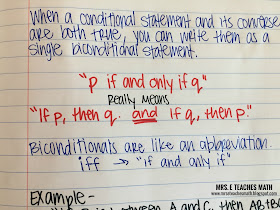 When a conditional statement and its converse
are both true, you can write them as a
single biconditional statement.
"p if and only if q"
Really means
"If p, then q. and If q, then p."
Biconditionals are like an abbreviation.
iff → "if and only if"
MRS. E TEACHES MATH
www.mrseteachesmath.blogspot.com
Example -
between A and C, then AB+BC